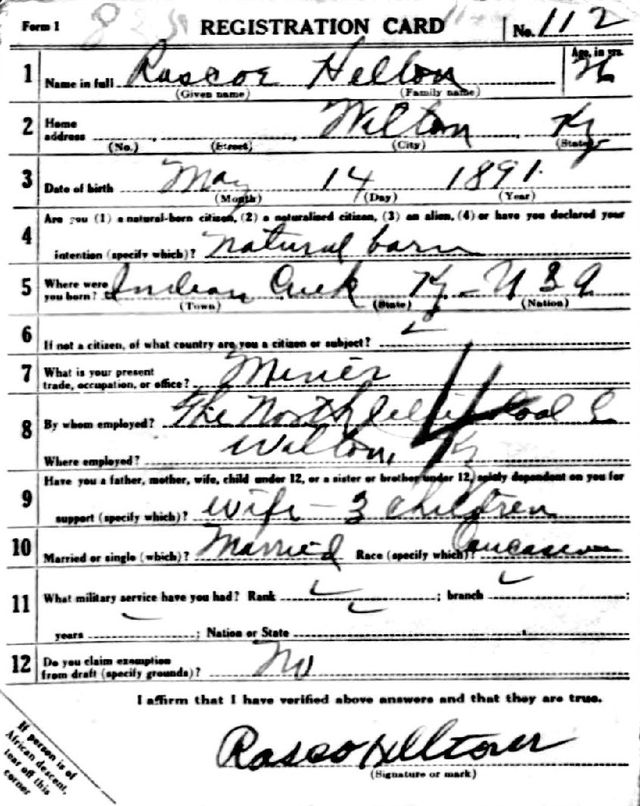 Form 1 REGISTRATION CARD No. 112
1 Name in full Rascoe Helton Age, in yrs. 26
(Given name) (Family name)
2 Home address Wilton, Ky
(No.) (Street) (City) (State)
3 Date of birth May 14 1891
(Month) (Day) (Year)
4 Are you (1) a natural-born citizen, (2) a naturalized citizen, (3) an alien, (4) or have you declared your
intention (specify which)? natural born
5 Where were you born? Indian Creek Ky - U S A
(Town) (State) (Nation)
6 If not a citizen, of what country are you a citizen or subject?
7 What is your present trade, occupation, or office? Miner
8 By whom employed? The North Jellico Coal Co
Where employed? Wilton, Ky
9 Have you a father, mother, wife, child under 12, or a sister or brother under 12, solely dependent on you for
support (specify which)? wife - 3 children
10 Married or single (which)? Married Race (specify which)? Caucasian
11 What military service have you had? Rank ; branch ;
years ; Nation or State
12 Do you claim exemption from draft (specify grounds)? No
I affirm that I have verified above answers and that they are true.
Rasco Helton
(Signature or mark)
If person is of
African descent,
tear off this
corner